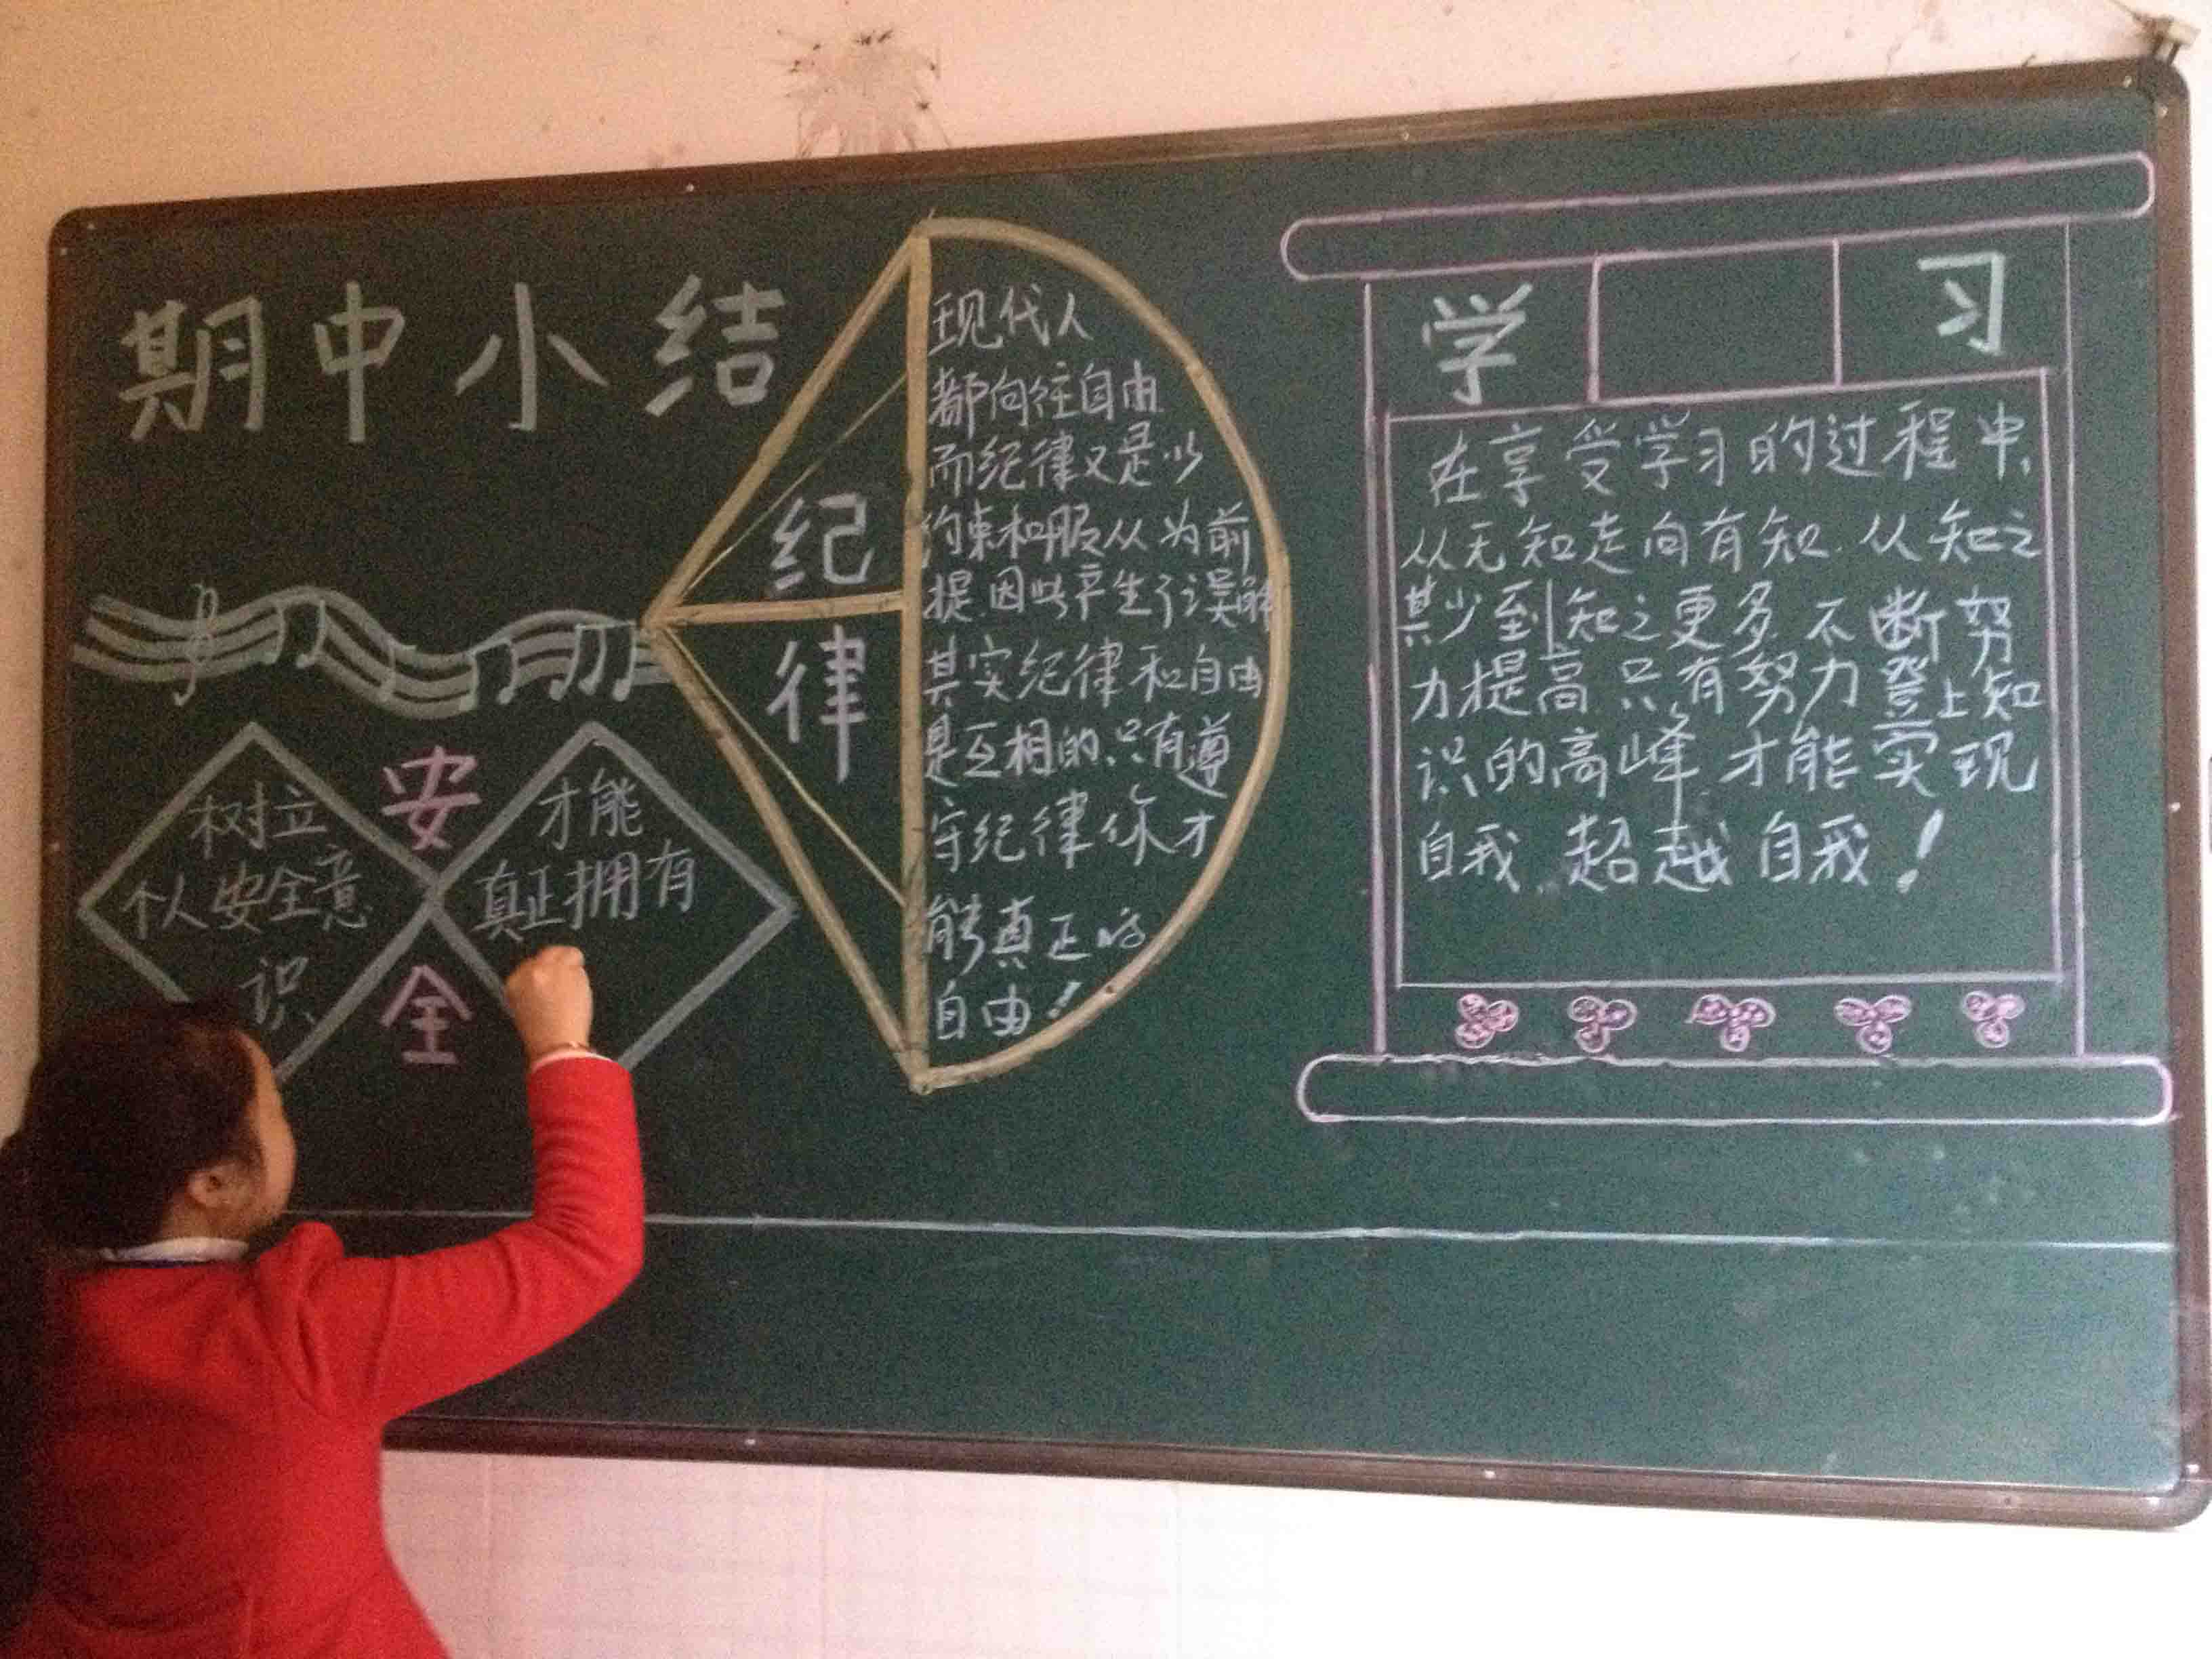 期中小结
安
全
树立
个人安全意
识
才能
真正拥有
纪
律
现代人
都向往自由
而纪律又是以
约束和服从为前
提因此产生了误解
其实纪律和自由
是互相的.只有遵
守纪律你才
能真正的
自由!
学 习
在享受学习的过程中,
从无知走向有知.从知之
其少到知之更多.不断努
力提高只有努力登上知
识的高峰才能实现
自我.超越自我!